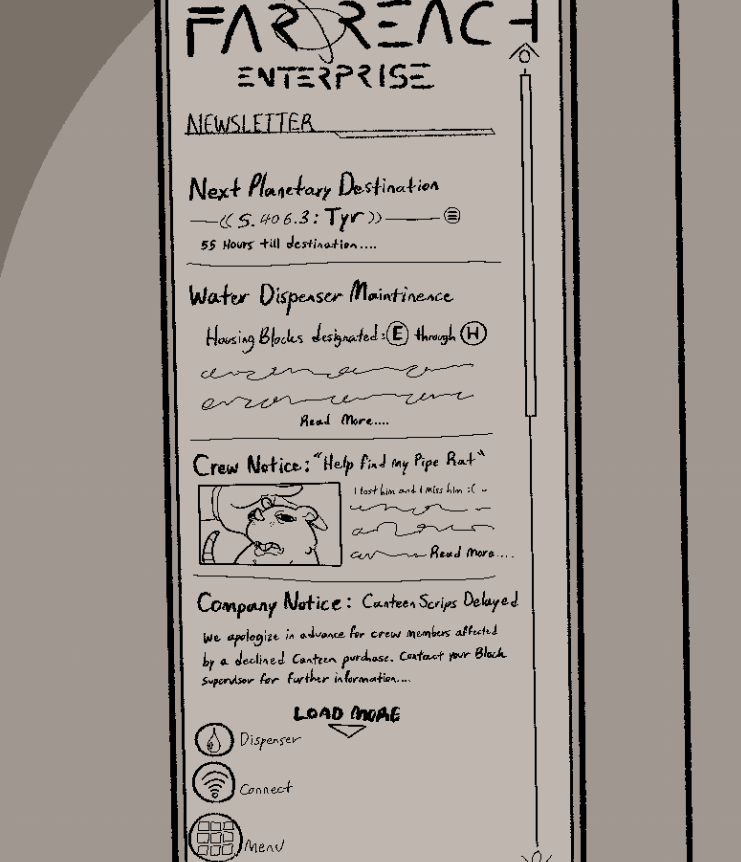 FARREACH
ENTERPRISE
NEWSLETTER
Next Planetary Destination
((S.406.3: Tyr))
55 Hours till destination....
Water Dispenser Maintinence
Housing Blocks designated: E through H
Read More....
Crew Notice: "Help find my Pipe Rat"
I lost him and I miss him :(
Read more....
Company Notice: Canteen Scrips Delayed
We apologize in advance for crew members affected
by a declined Canteen purchase. Contact your Block
supervisor for further information....
LOAD MORE
Dispenser
Connect
Menu